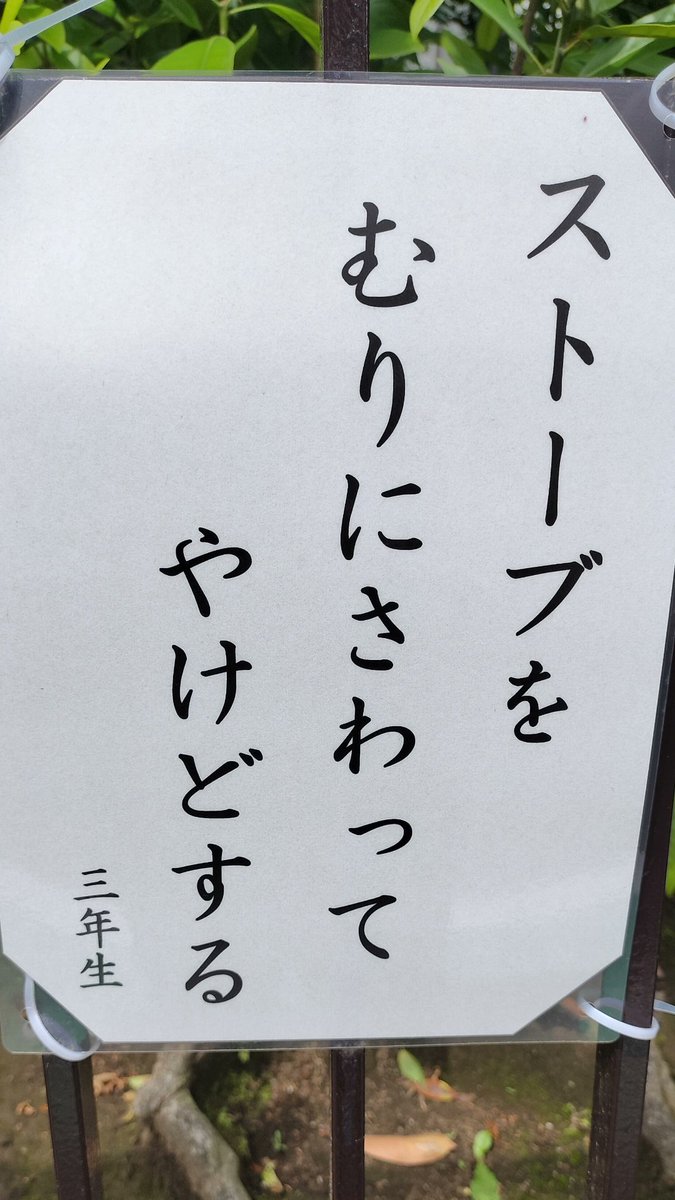 ストーブを
むりにさわって
やけどする
三年生